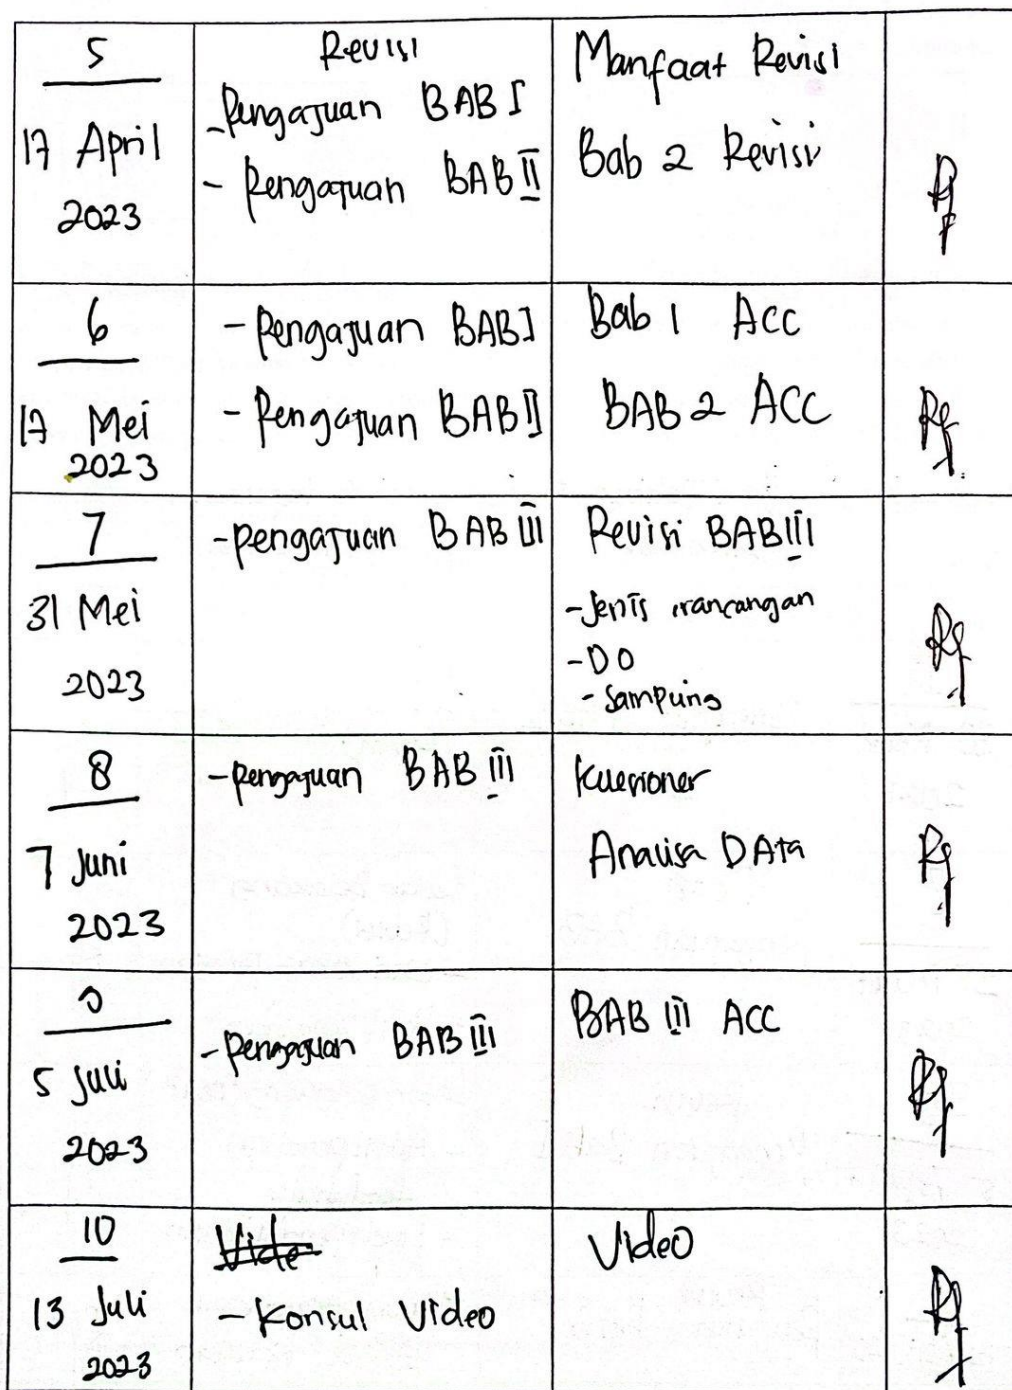 5
17 April
2023
Revisi
- Pengajuan BAB I
- Pengajuan BAB II
Manfaat Revisi
Bab 2 Revisi
6
17 Mei
2023
- Pengajuan BAB I
- Pengajuan BAB II
Bab 1 ACC
BAB 2 ACC
7
31 Mei
2023
- Pengajuan BAB III
Revisi BAB III
- Jenis rancangan
- DO
- Sampling
8
7 Juni
2023
- Pengajuan BAB III
Kuesioner
Analisa DAta
9
5 Juli
2023
- Pengajuan BAB III
BAB III ACC
10
13 Juli
2023
Vide
- Konsul Video
Video